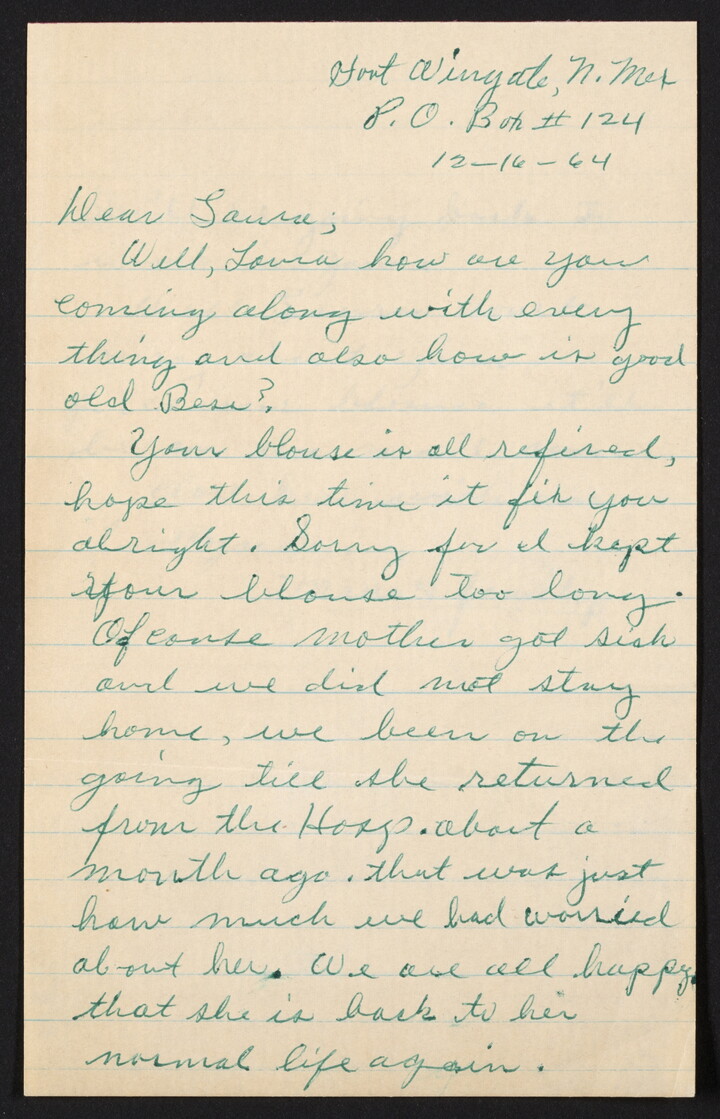 Fort Wingate, N. Mex
P. O. Box # 124
12-16-64
Dear Laura;
Well, Laura how are you
coming along with every
thing and also how is good
old Bess?
Your blouse is all refixed,
hope this time it fix you
alright. Sorry for I kept
your blouse too long.
Of couse mother got sick
and we did not stay
home, we been on the
going till she returned
from the Hosp. about a
month ago. that was just
how much we had worried
about her. We are all happy
that she is back to her
normal life again.